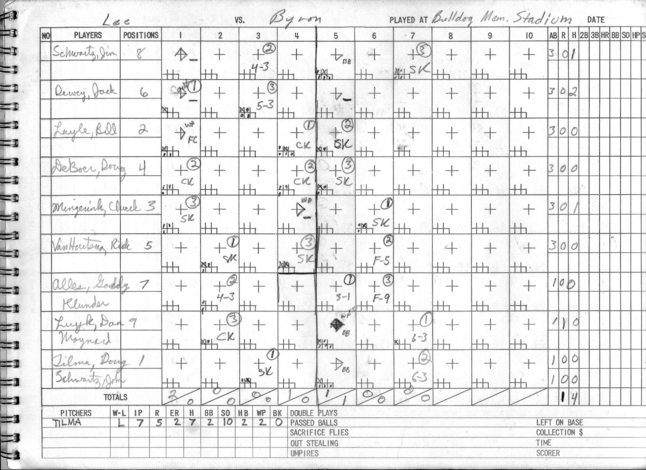 Lee VS. Byron PLAYED AT Bulldog Mem. Stadium DATE
NO PLAYERS POSITIONS 1 2 3 4 5 6 7 8 9 10 AB R H 2B 3B HR BB SO HP S
Schwartz, Jim 8 2 4-3 BB 3 SK 3 0 1
Dewey, Jack 6 1 3 5-3 3 0 2
Layle, Bill 2 WP FC 1 CK 2 SK 3 0 0
DeBoer, Doug 4 2 CK 2 CK 3 SK 3 0 0
Mingerink, Chuck 3 3 SK WP 1 SK 3 0 1
VanHoutsma, Rick 5 1 SK 3 SK 2 F-5 3 0 0
Alles, Gaddy 7 2 4-3 1 3-1 3 F-9 1 0 0
Hunder
Luyk, Dan 9 3 CK BB 1 6-3 1 1 0
Maynard
Tilma, Doug 1 1 SK BB 2 6-3 1 0 0
Schwartz, John 1 0 0
TOTALS 2 0 0 0 0 0 1 0 1 1 0 0 0 0 1 4
PITCHERS W-L IP R ER H BB SO HB WP BK DOUBLE PLAYS
TILMA L 7 5 2 7 2 10 2 2 0 PASSED BALLS LEFT ON BASE
SACRIFICE FLIES COLLECTION $
OUT STEALING TIME
UMPIRES SCORER